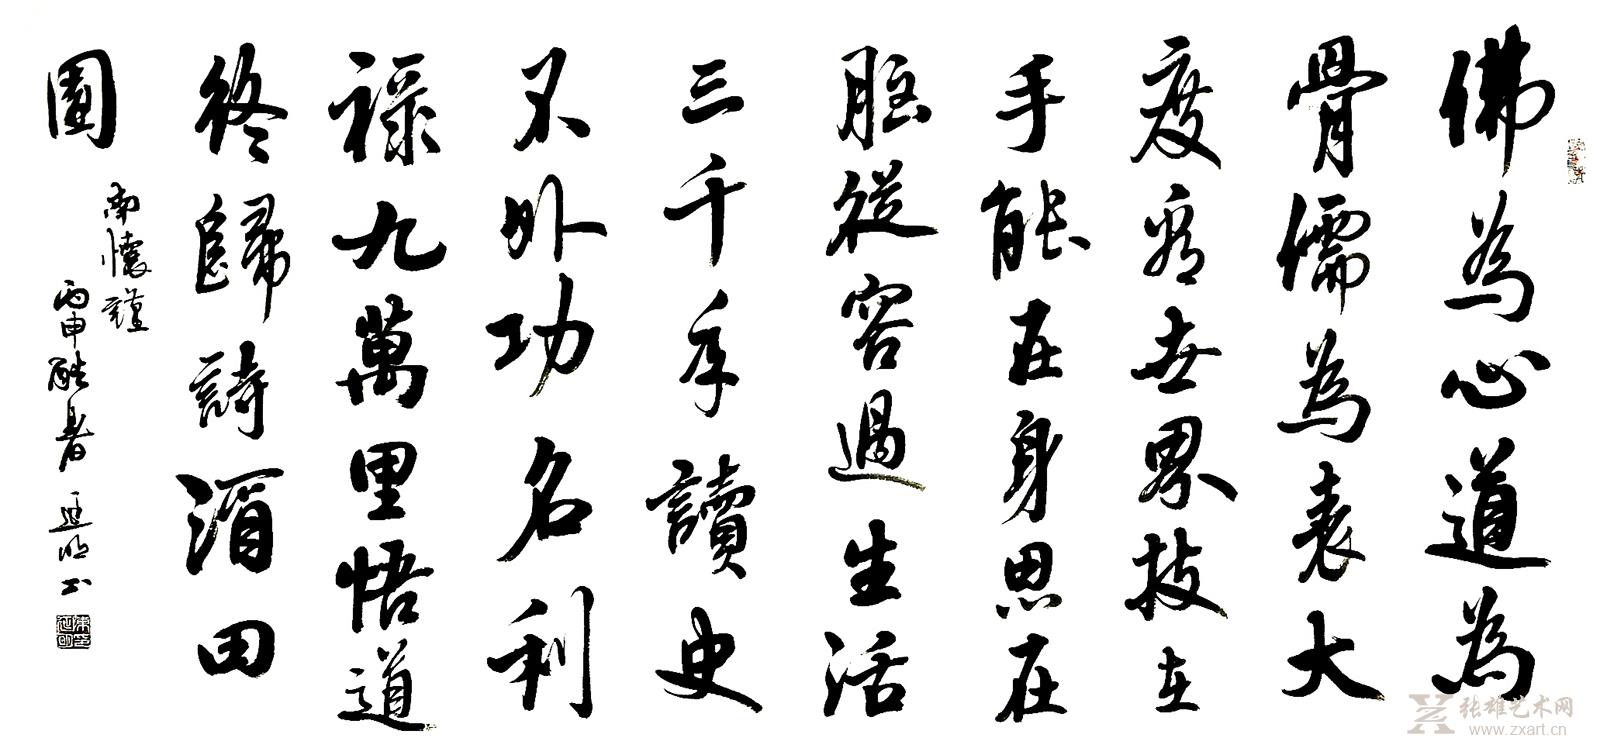 佛為心道為
骨儒為表大
度看世界技在
手能在身思在
脑從容過生活
三千年讀史
不外功名利
禄九萬里悟道
終歸詩酒田
園
南懷謹
丙申酷暑 书
张雄艺术网
www.zxart.cn